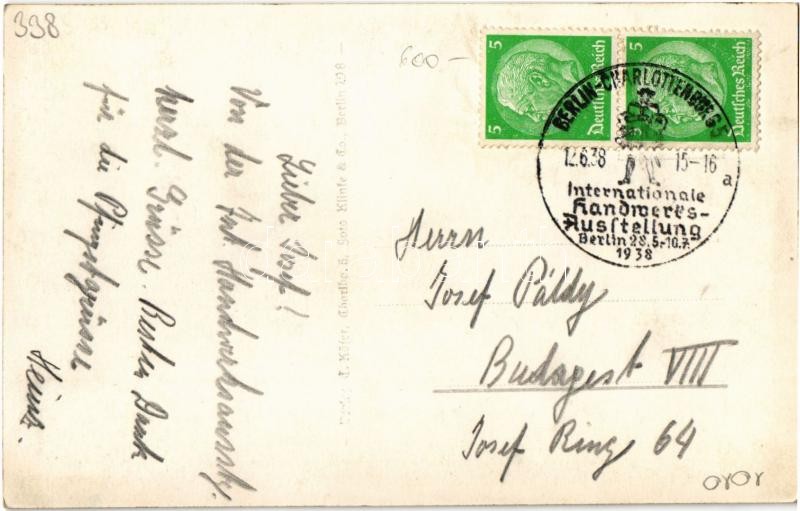 338
600–
5
Deutsches Reich
5
5
Deutsches Reich
5
BERLIN-CHARLOTTENBURG 5
12.6.38
15-16
a
Internationale
Handwerks-
Ausstellung
Berlin 28.5.-10.7.
1938
Lieber Josef!
Von der Int. Handwerksausstg.
herzl. Grüsse. Besten Dank
für die Pfingstgrüsse
Heinz.
Foto Klinke & Co., Berlin W 8 –
Herrn
Josef Páldy
Budapest VIII
Josef Ring 64